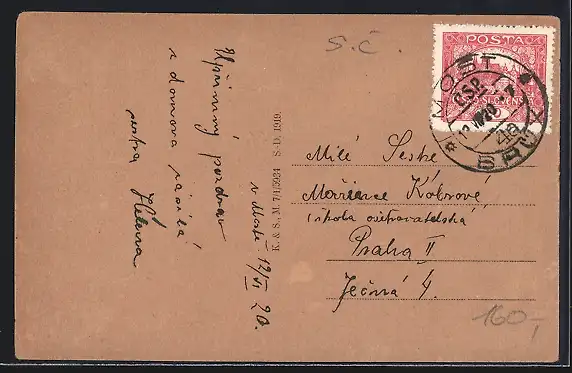 S.Č.
POSTA
MOST
ČSP
BRÜX
Upřímný pozdrav
z domova zasílá
sestra Helena
v Mostě 12/VI 20.
K. & S., M. 7/15934 S.-D. 1919.
Milé Sestře
Mařence Kobrové
škola ošetřovatelská
Praha II
Ječná 4.
160,-